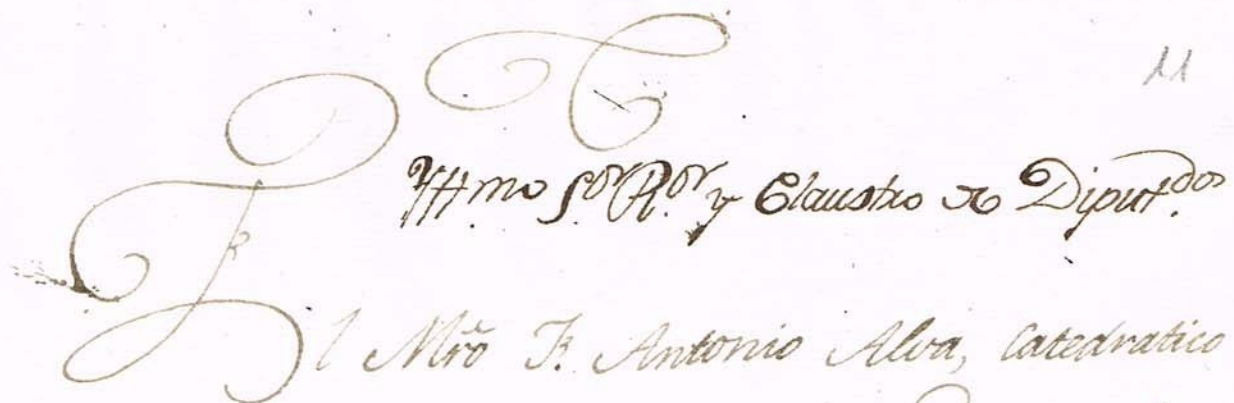 11
Yttmo Sor Ror y Claustro de Diputdos
El Mro F. Antonio Alva, Catedratico